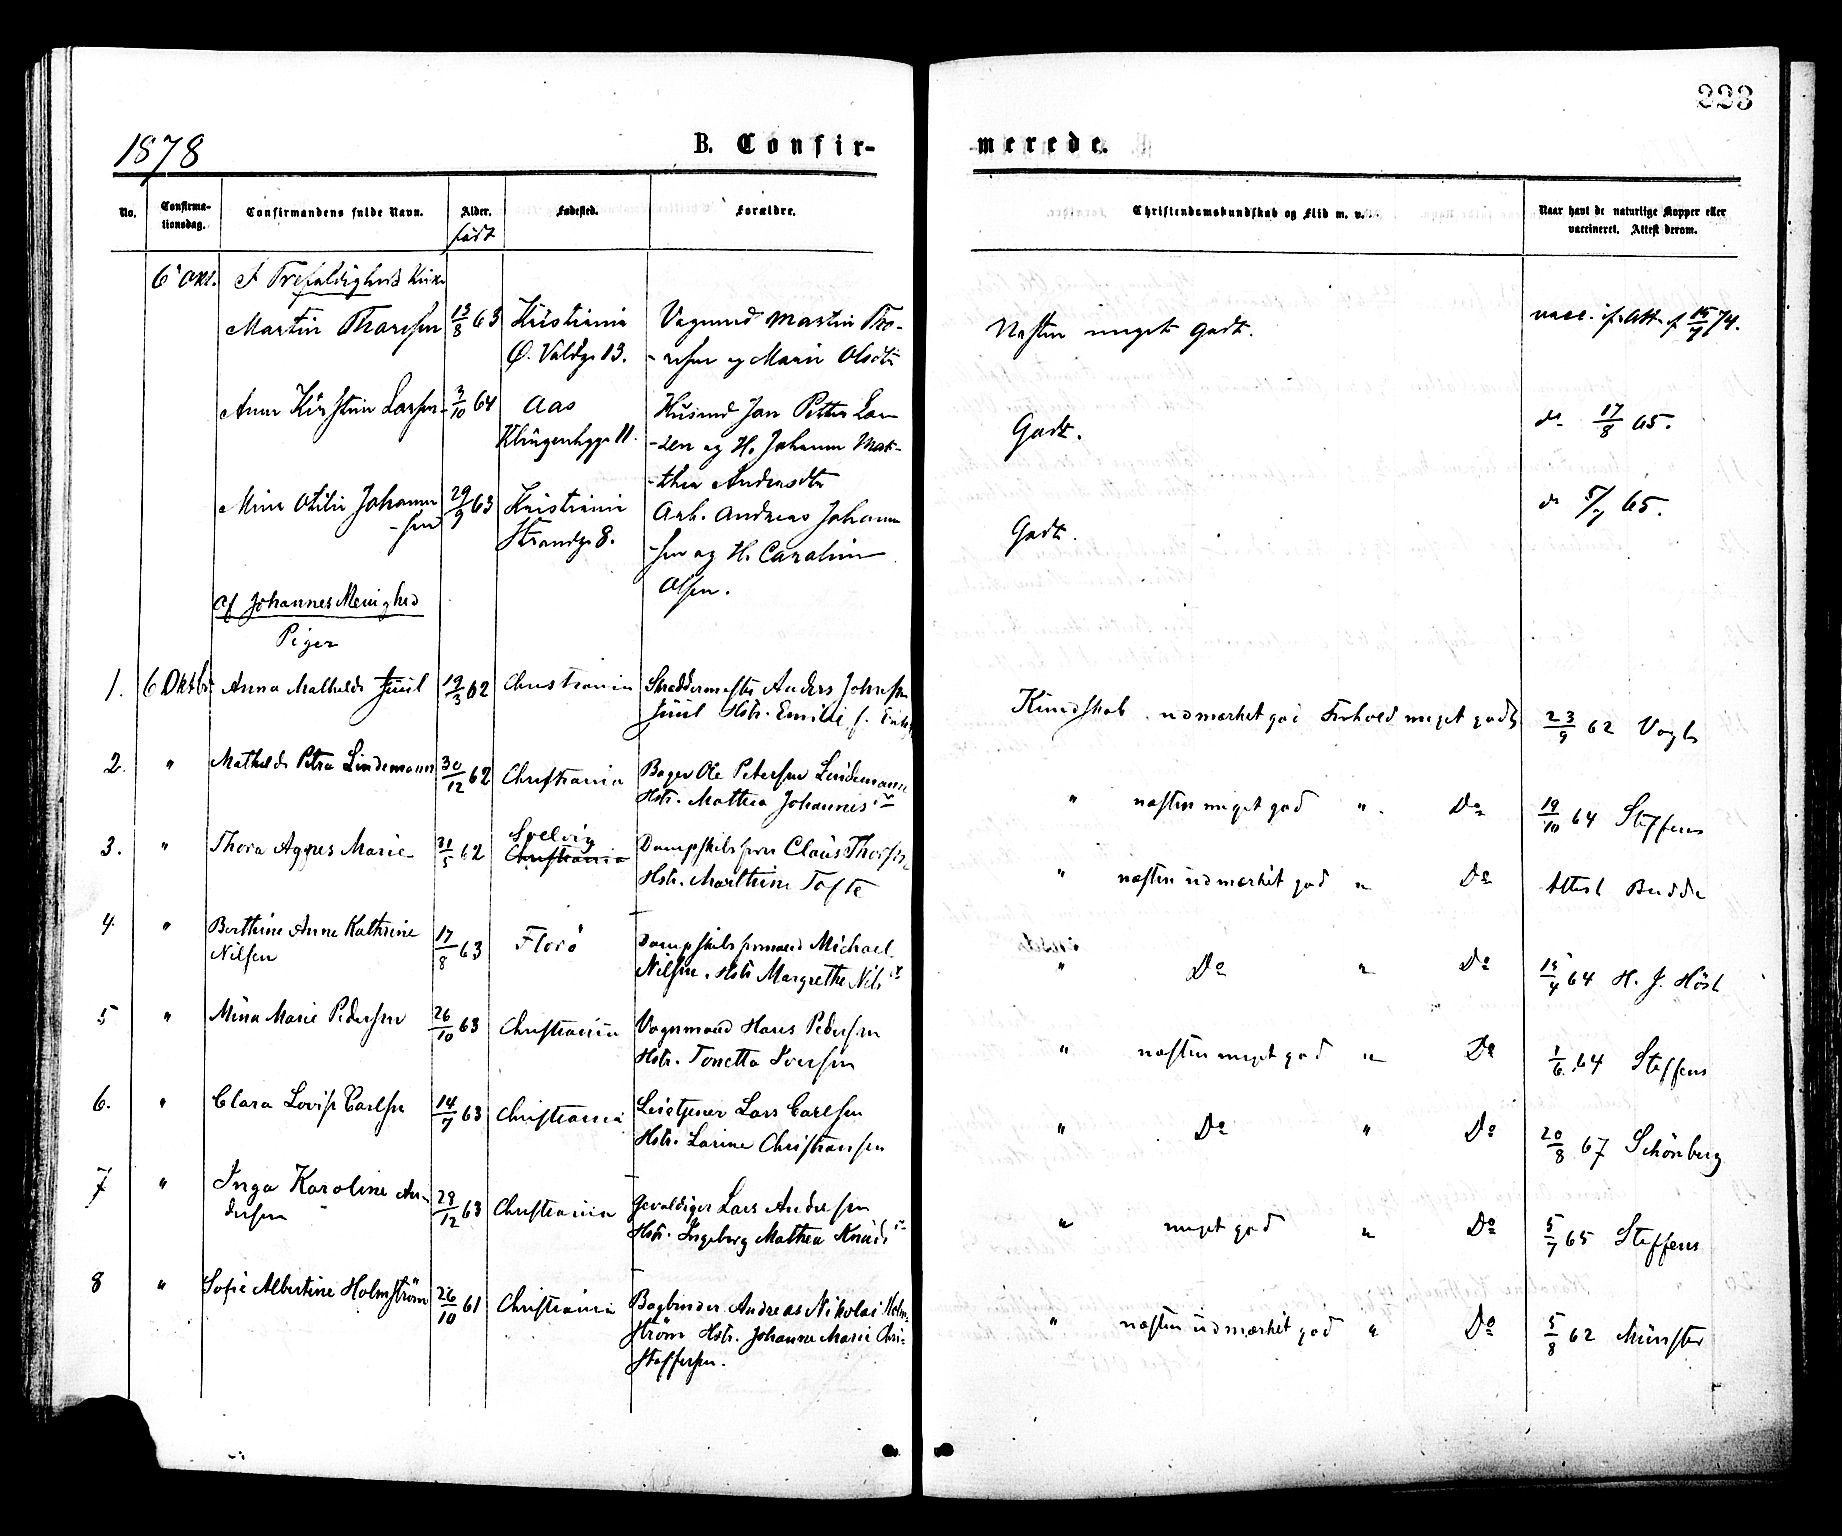 223
1878
B. Confir-
merede.
No.
Confirma-
tionsdag.
Confirmandens fulde Navn.
Alder.
født
Fødested.
Forældre.
Christendomskundskab og Flid m. v.
Naar havt de naturlige Kopper eller
vaccineret. Attest derom.
6' Okt. I Trefoldigheds Kirke
Martin Thoresen 13/8 63 Kristiania Vognmd Martin Tho-
Ø. Valdg. 13. -resen og Marie Olsdtr
Næsten meget Godt. vacc. if. Att. af 15/7 74.
Anne Kirstine Larsen 3/10 64 Aas Husmd Jan Petter Lar-
Klingenbgg. 11. -sen og H. Johanne Mat-
-thea Andersdtr
Godt. do 17/8 65.
Mina Otilie Johanne- 29/9 63 Kristiania Arb. Andreas Johann-
-sen Strandg. 8. -sen og H. Caroline
Olsen.
Godt. do 5/7 65.
Af Johannes Menighed
Piger
1. 6 Oktbr Anna Mathilde Juul 19/3 62 Christiania Skreddermester Anders Johnsen
Juul Hstr. Emilie f.
Kundskab udmærket god Forhold meget godt 23/9 62 Vogt
2. " Mathilde Petra Lindemann 30/12 62 Christiania Bager Ole Petersen Lindemann
Hstr. Mathea Johannesdr
" næsten meget god " Do 19/10 64 Steffens
3. " Thora Agnes Marie 31/5 62 Svelvig
Christiania Dampskibsfører Claus Thorsen
Hstr. Marthine Tofte
" næsten udmærket god " Do Attest Budde
4. " Berthine Anne Kathrine
Nilsen 17/8 63 Florø Dampskibsformand Michael
Nilsen. Hstr Margrethe Nilsdr
" Do " Do 15/4 64 H. J. Høst
5 " Mina Marie Pedersen 26/10 63 Christiania Vognmand Hans Pedersen
Hstr. Tonetta Iversen
" næsten meget god " Do 1/6 64 Steffens
6. " Clara Lovise Carlsen 14/7 63 Christiania Leietjener Lars Carlsen
Hstr. Larine Christiansen
" Do " Do 20/8 67 Schønberg
7 " Inga Karoline An-
dersen 28/12 63 Christiania Gevaldiger Lars Andersen
Hstr. Ingeborg Mathea Knudsdr
" meget god " Do 5/7 65 Steffens
8 " Sofie Albertine Holmstrøm 26/10 61 Christiania Bogbinder Andreas Nikolai Holm-
strøm Hstr. Johanne Marie Chri-
stoffersen.
" næsten udmærket god " Do 5/8 62 Münster